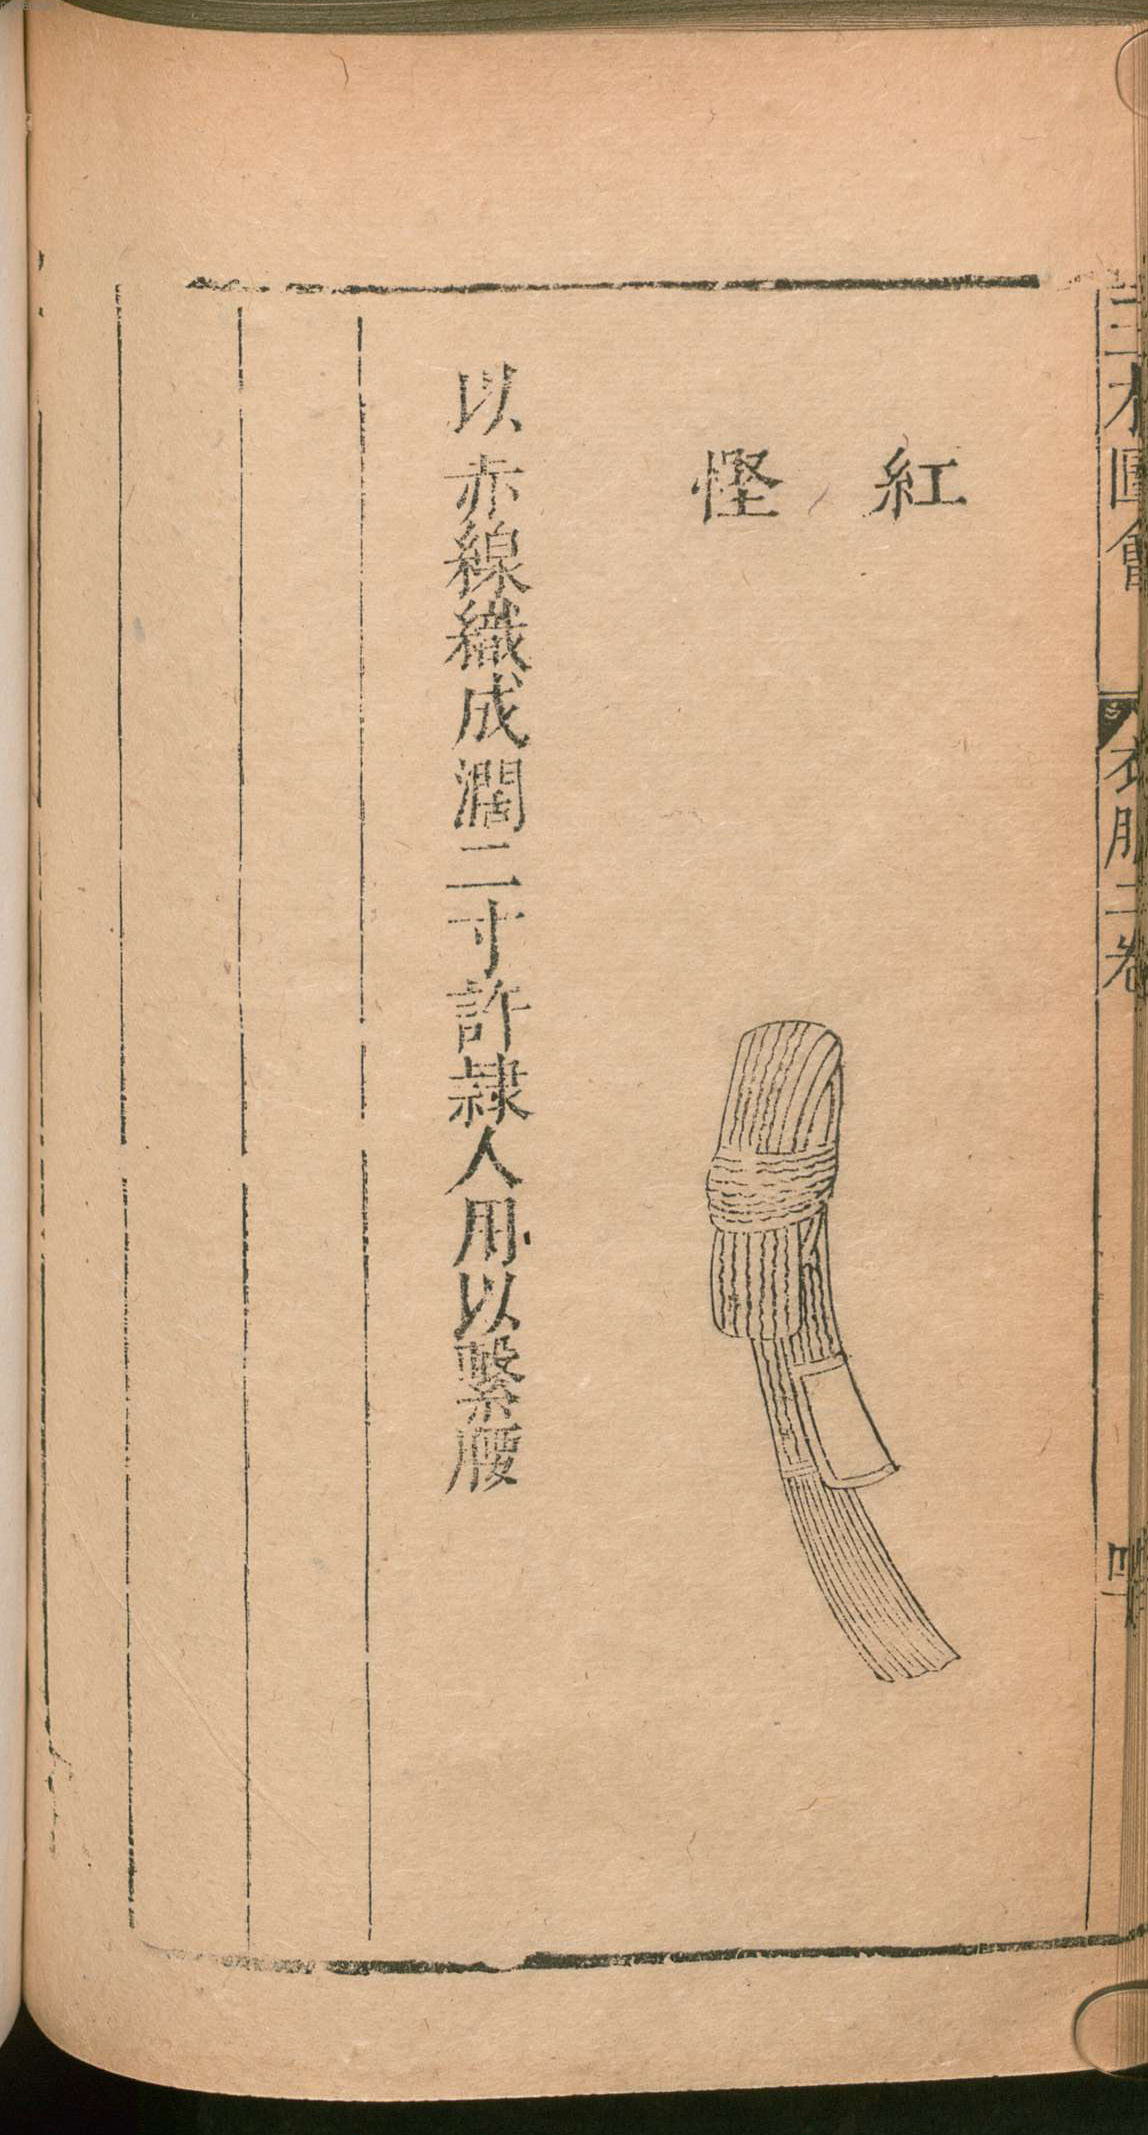 三才圖會
衣服二卷
紅慳
以赤線織成濶二寸許隷人用以繫腰